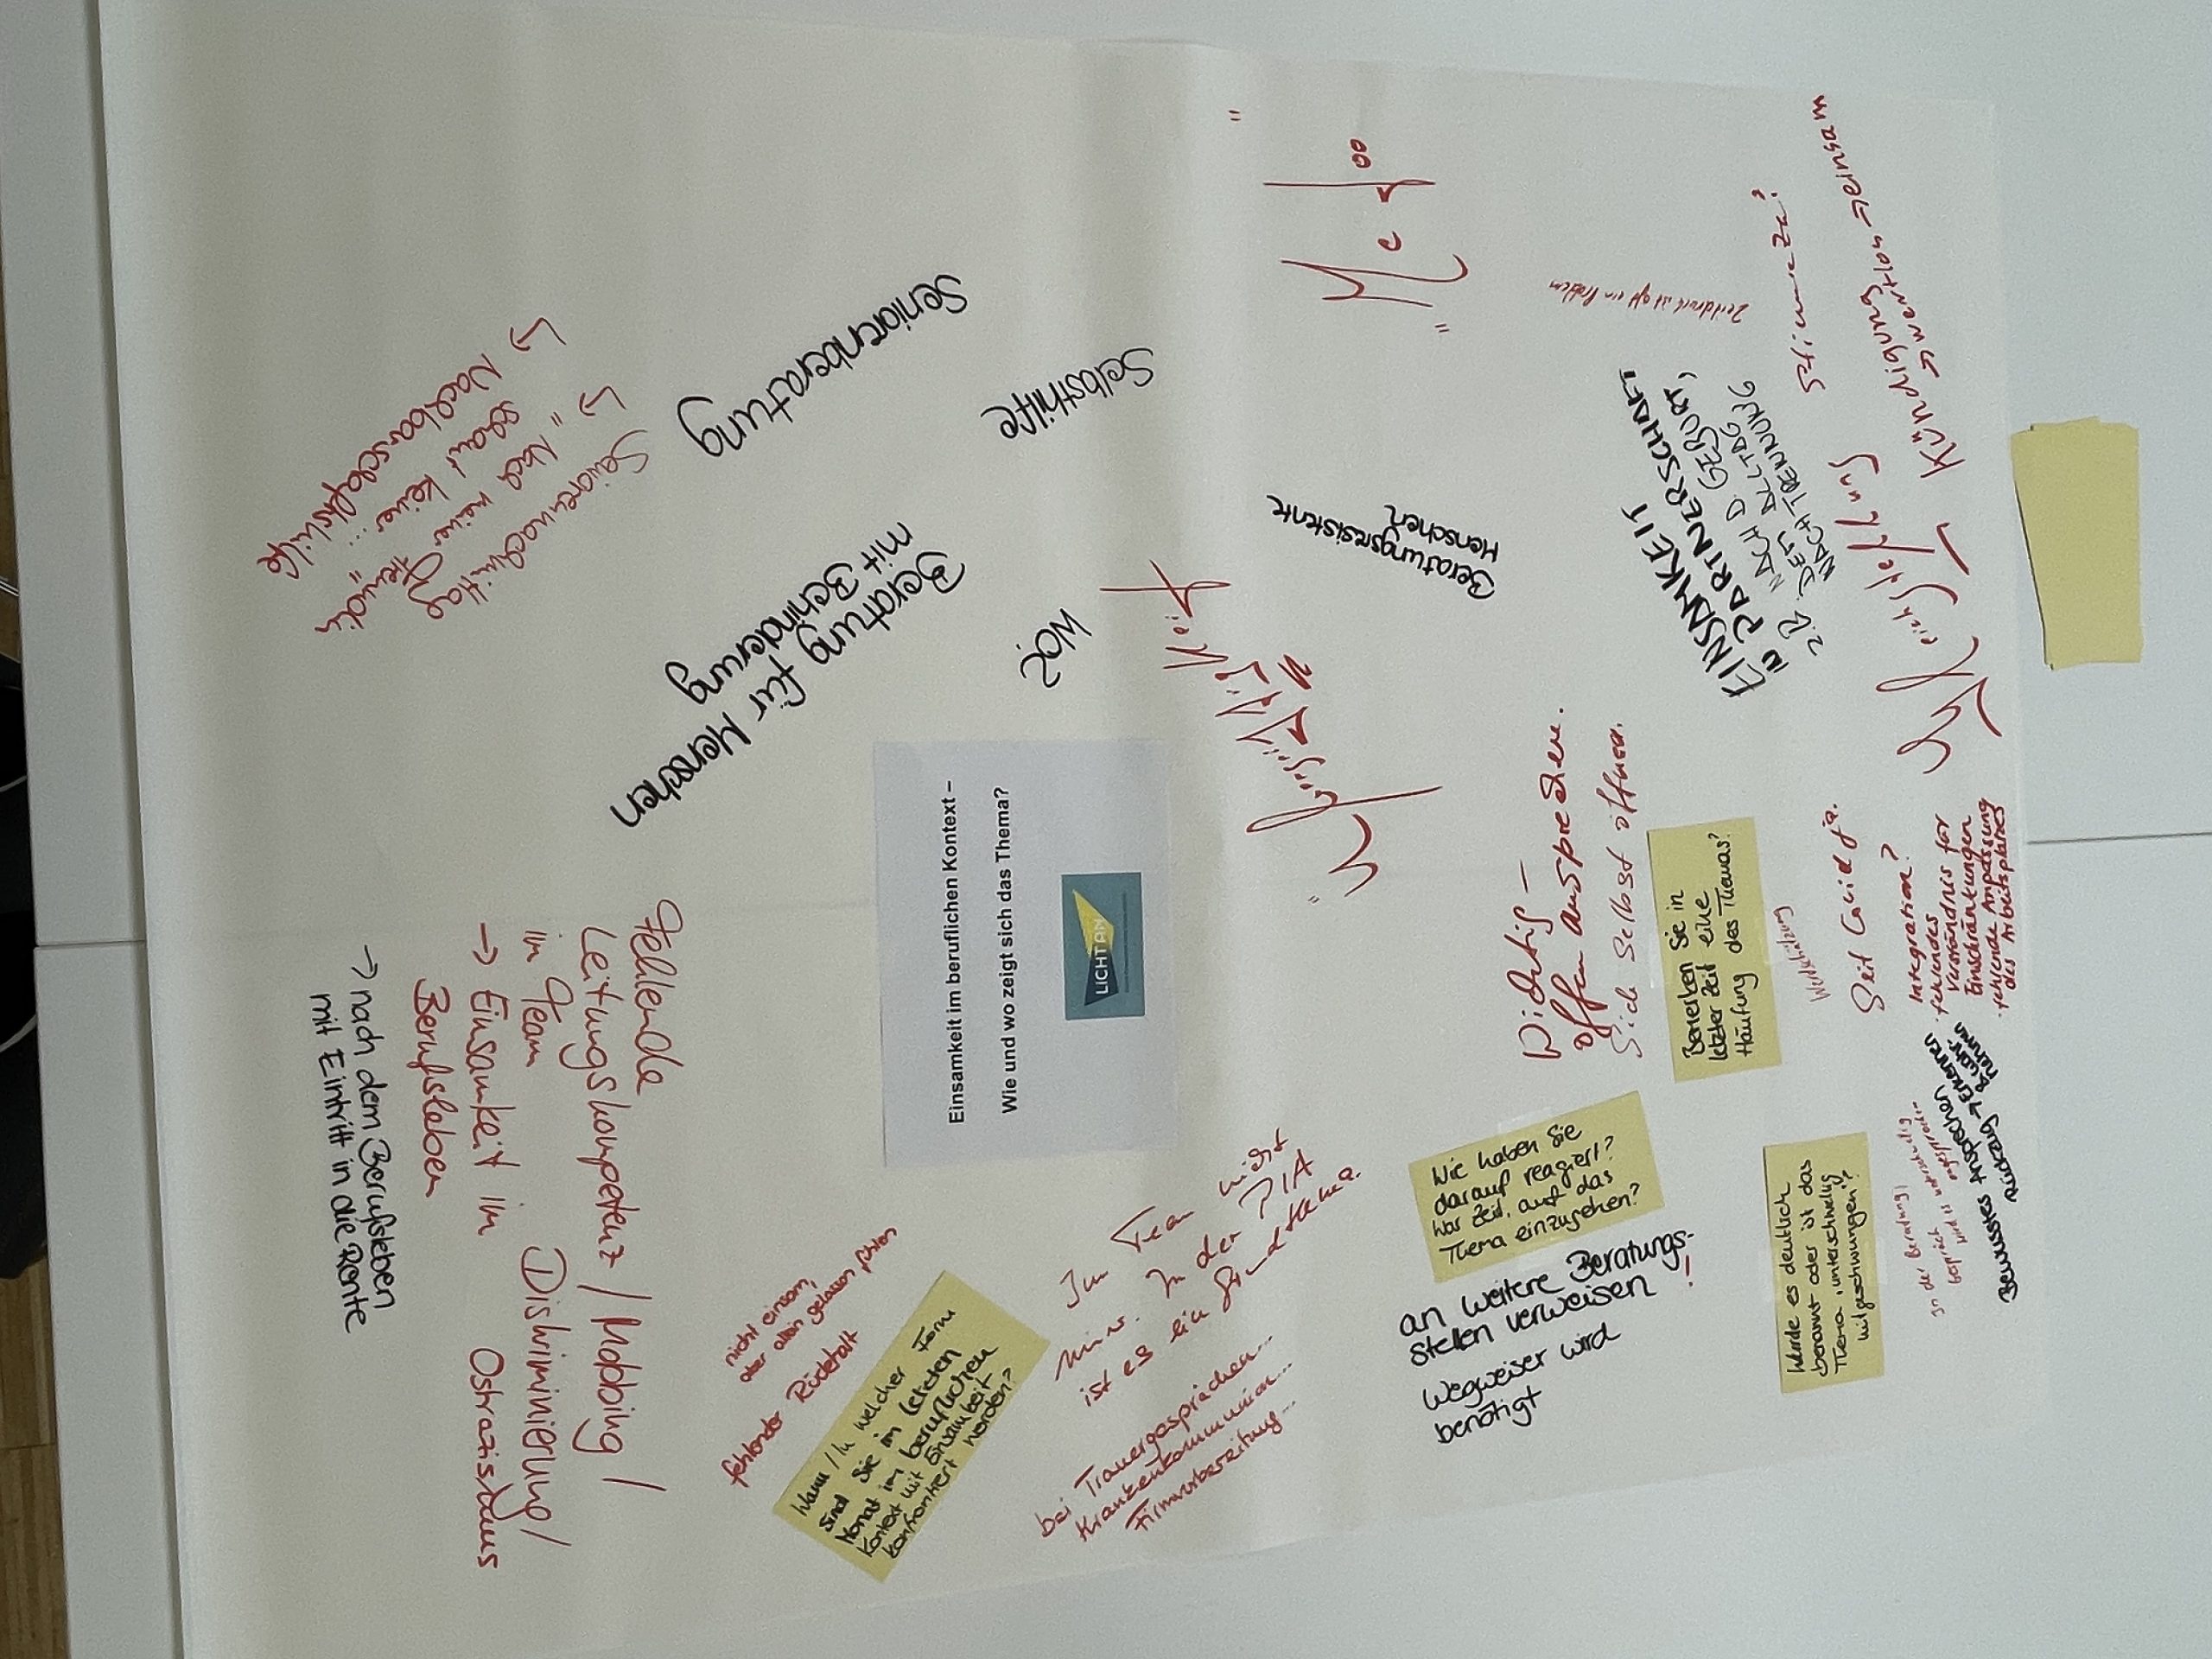 Einsamkeit im beruflichen Kontext –
Wie und wo zeigt sich das Thema?
LICHT AN
Wo?
Beratung für Menschen
mit Behinderung
Seniorenberatung
Selbsthilfe
Beratungsresistente
Menschen
Seniorennachmittag
↳ "Nach meiner
schaut keiner..."
↳ Nachbarschaftshilfe
Fehlende
Leitungskompetenz / Mobbing /
im Team
Diskriminierung /
→ Einsamkeit im
Berufsleben
Ostrazismus
→ nach dem Berufsleben
mit Eintritt in die Rente
nicht einsam,
aber allein gelassen fühlen
fehlender Rückhalt
Wann / In welcher Form
sind Sie im letzten
Monat im beruflichen
Kontext mit Einsamkeit
konfrontiert worden?
Im Team nicht
In der PIA
ist es ein
bei Trauergesprächen...
Krankenkommunion...
Firmvorbereitung...
Wie haben Sie
darauf reagiert?
War Zeit, auf das
Thema einzugehen?
an weitere Beratungs-
stellen verweisen !
Wegweiser wird
benötigt
Wichtig –
offen ansprechen.
Sich selbst öffnen.
Bemerken Sie in
letzter Zeit eine
Häufung des Themas?
Wertschätzung
Seit Covid ja.
Integration?
· fehlendes
Verständnis für
Einschränkungen
· fehlende Anpassung
des Arbeitsplatzes
Wurde es deutlich
benannt oder ist das
Thema „unterschwellig
mitgeschwungen"?
In der Beratung;
Gespräch unterschwellig
wird es angesprochen
Bewusstes Ansprechen
Rückzug → Erkennen
EINSAMKEIT
IN PARTNERSCHAFT
Z.B. NACH D. GEBURT,
DEN ALLTAG
NACH TRENNUNG
Kündigung
→ wertlos → einsam
Stimme zu!
Zeitdruck ist oft ein Problem